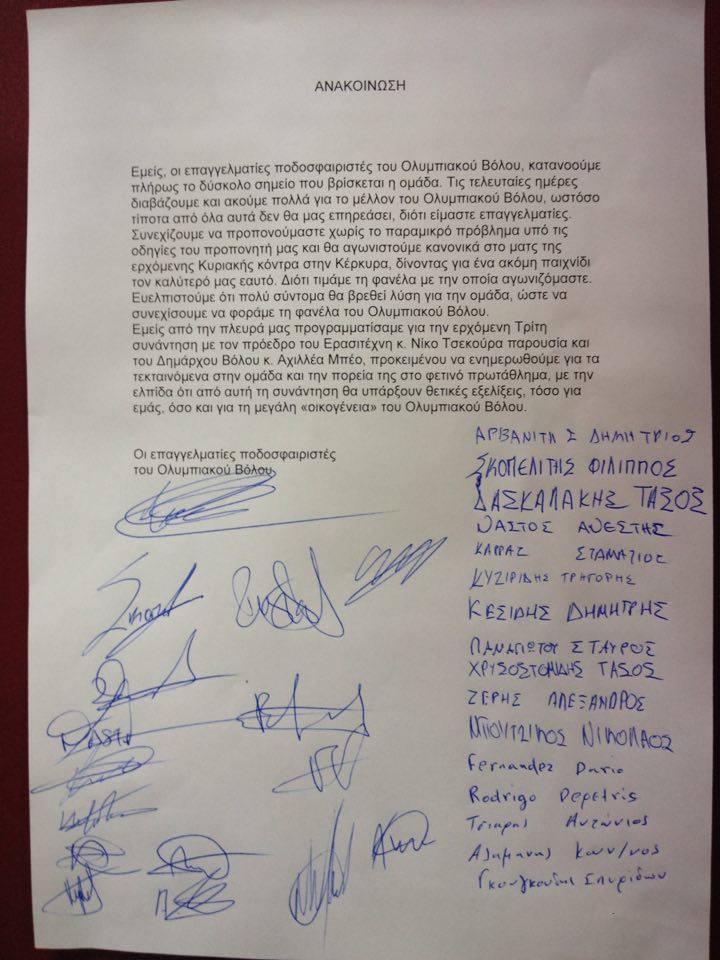 ΑΝΑΚΟΙΝΩΣΗ
Εμείς, οι επαγγελματίες ποδοσφαιριστές του Ολυμπιακού Βόλου, κατανοούμε
πλήρως το δύσκολο σημείο που βρίσκεται η ομάδα. Τις τελευταίες ημέρες
διαβάζουμε και ακούμε πολλά για το μέλλον του Ολυμπιακού Βόλου, ωστόσο
τίποτα από όλα αυτά δεν θα μας επηρεάσει, διότι είμαστε επαγγελματίες.
Συνεχίζουμε να προπονούμαστε χωρίς το παραμικρό πρόβλημα υπό τις
οδηγίες του προπονητή μας και θα αγωνιστούμε κανονικά στο ματς της
ερχόμενης Κυριακής κόντρα στην Κέρκυρα, δίνοντας για ένα ακόμη παιχνίδι
τον καλύτερό μας εαυτό. Διότι τιμάμε τη φανέλα με την οποία αγωνιζόμαστε.
Ευελπιστούμε ότι πολύ σύντομα θα βρεθεί λύση για την ομάδα, ώστε να
συνεχίσουμε να φοράμε τη φανέλα του Ολυμπιακού Βόλου.
Εμείς από την πλευρά μας προγραμματίσαμε για την ερχόμενη Τρίτη
συνάντηση με τον πρόεδρο του Ερασιτέχνη κ. Νίκο Τσεκούρα παρουσία και
του Δημάρχου Βόλου κ. Αχιλλέα Μπέο, προκειμένου να ενημερωθούμε για τα
τεκταινόμενα στην ομάδα και την πορεία της στο φετινό πρωτάθλημα, με την
ελπίδα ότι από αυτή τη συνάντηση θα υπάρξουν θετικές εξελίξεις, τόσο για
εμάς, όσο και για τη μεγάλη «οικογένεια» του Ολυμπιακού Βόλου.
Οι επαγγελματίες ποδοσφαιριστές
του Ολυμπιακού Βόλου
ΑΡΒΑΝΙΤΗΣ ΔΗΜΗΤΡΙΟΣ
ΣΚΟΠΕΛΙΤΗΣ ΦΙΛΙΠΠΟΣ
ΔΑΣΚΑΛΑΚΗΣ ΤΑΣΟΣ
ΝΑΣΤΟΣ ΑΝΕΣΤΗΣ
ΚΑΡΡΑΣ ΣΤΑΜΑΤΙΟΣ
ΚΥΖΙΡΙΔΗΣ ΓΡΗΓΟΡΗΣ
ΚΕΣΙΔΗΣ ΔΗΜΗΤΡΗΣ
ΠΑΝΑΓΙΩΤΟΥ ΣΤΑΥΡΟΣ
ΧΡΥΣΟΣΤΟΜΙΔΗΣ ΤΑΣΟΣ
ΖΕΡΗΣ ΑΛΕΞΑΝΔΡΟΣ
ΜΠΟΥΤΖΙΚΟΣ ΝΙΚΟΛΑΟΣ
Fernandez Dario
Rodrigo Depetris
Τσιαρης Αντώνιος
Κων/νος
Σπυρίδων